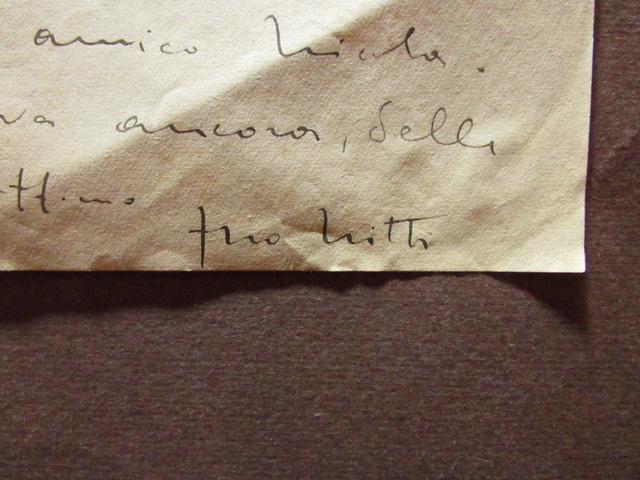 amico Nicola.
va ancora, delle
ttimo
Ino Nitti